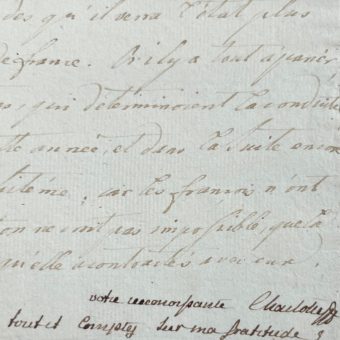 dès qu'il verra l'état plus
de france. Or il y a tout à parier,
qui determinoient la conduite
année, et dans la suite encore
car les françois n'ont
on ne croit pas impossible, que la
qu'elle a contractés avec eux.
votre reconoissante Charlotte
tout et Comptés sur ma gratitude